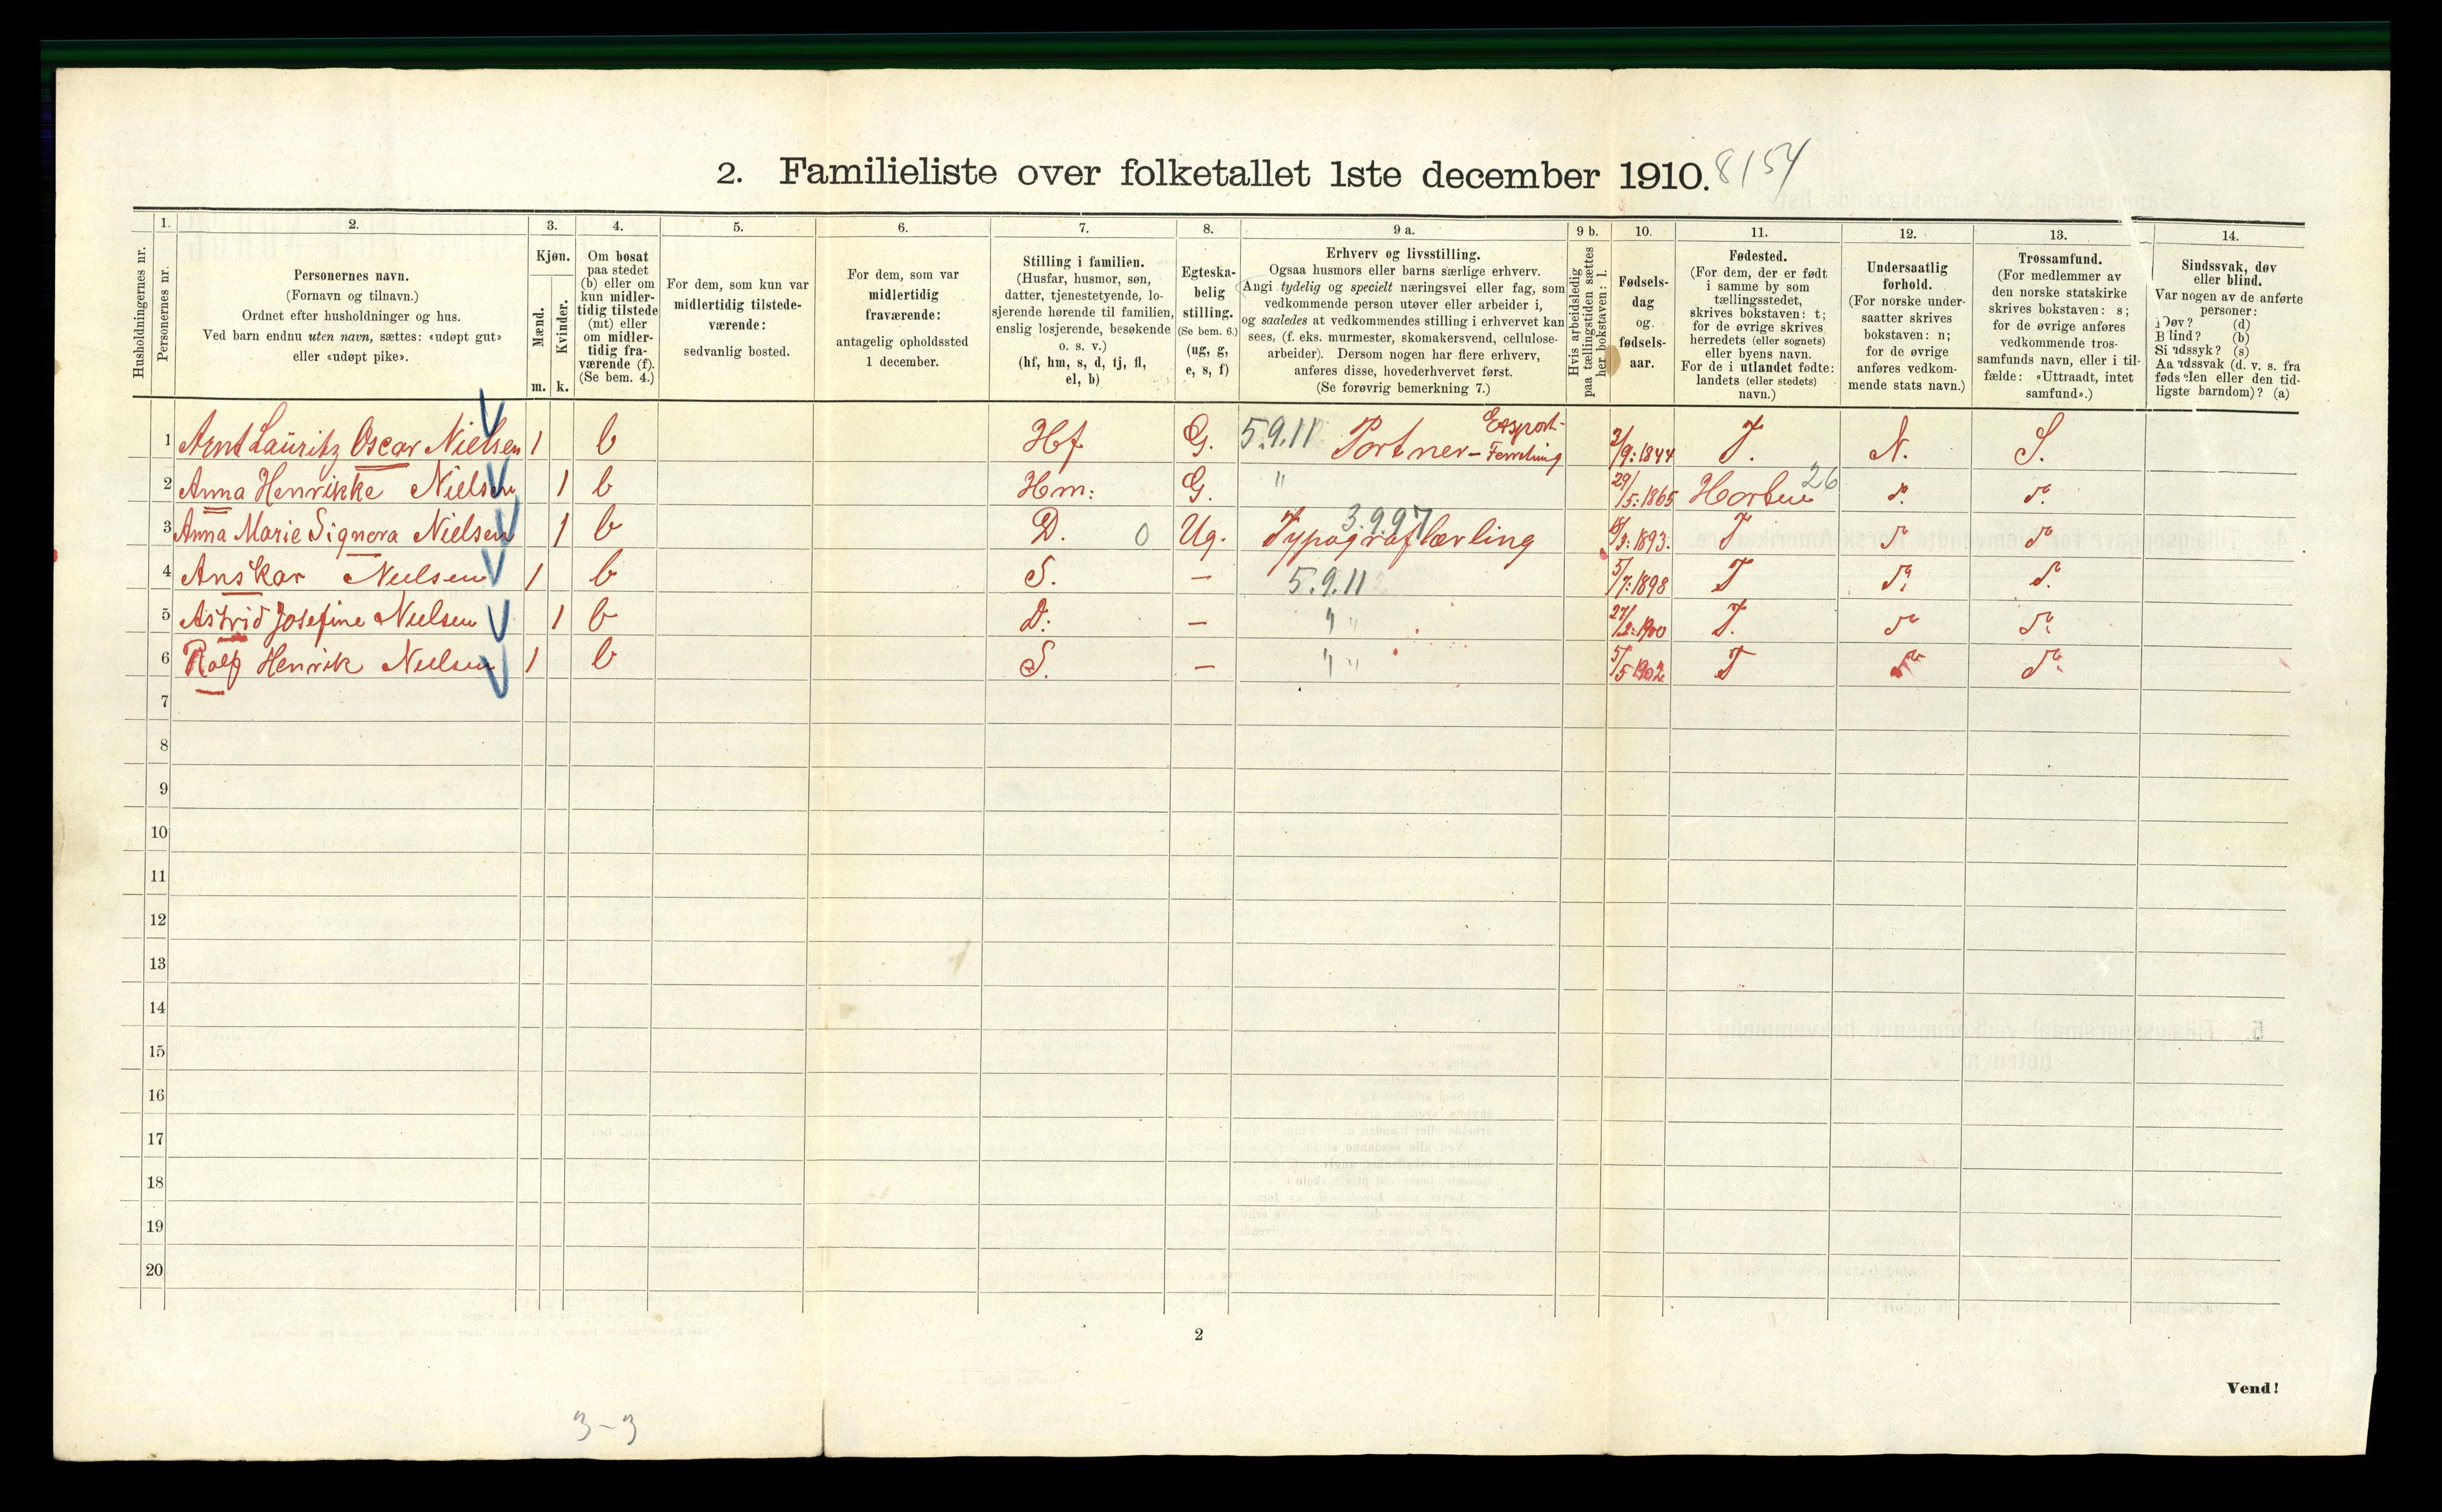 2. Familieliste over folketallet 1ste december 1910. 8154
Husholdningernes nr.
1.
Personernes nr.
2.
Personernes navn.
(Fornavn og tilnavn.)
Ordnet efter husholdninger og hus.
Ved barn endnu uten navn, sættes: «udøpt gut»
eller «udøpt pike».
3.
Kjøn.
Mænd.
m.
Kvinder.
k.
4.
Om bosat
paa stedet
(b) eller om
kun midler-
tidig tilstede
(mt) eller
om midler-
tidig fra-
værende (f).
(Se bem. 4.)
5.
For dem, som kun var
midlertidig tilstede-
værende:
sedvanlig bosted.
6.
For dem, som var
midlertidig
fraværende:
antagelig opholdssted
1 december.
7.
Stilling i familien.
(Husfar, husmor, søn,
datter, tjenestetyende, lo-
sjerende hørende til familien,
enslig losjerende, besøkende
o. s. v.)
(hf, hm, s, d, tj, fl,
el, b)
8.
Egteska-
belig
stilling.
(Se bem. 6.)
(ug, g,
e, s, f)
9 a.
Erhverv og livsstilling.
Ogsaa husmors eller barns særlige erhverv.
Angi tydelig og specielt næringsvei eller fag, som
vedkommende person utøver eller arbeider i,
og saaledes at vedkommendes stilling i erhvervet kan
sees, (f. eks. murmester, skomakersvend, cellulose-
arbeider). Dersom nogen har flere erhverv,
anføres disse, hovederhvervet først.
(Se forøvrig bemerkning 7.)
9 b.
Hvis arbeidsledig
paa tællingstiden sættes
her bokstaven: l.
10.
Fødsels-
dag
og
fødsels-
aar.
11.
Fødested.
(For dem, der er født
i samme by som
tællingsstedet,
skrives bokstaven: t;
for de øvrige skrives
herredets (eller sognets)
eller byens navn.
For de i utlandet fødte:
landets (eller stedets)
navn.)
12.
Undersaatlig
forhold.
(For norske under-
saatter skrives
bokstaven: n;
for de øvrige
anføres vedkom-
mende stats navn.)
13.
Trossamfund.
(For medlemmer av
den norske statskirke
skrives bokstaven: s;
for de øvrige anføres
vedkommende tros-
samfunds navn, eller i til-
fælde: «Uttraadt, intet
samfund».)
14.
Sindssvak, døv
eller blind.
Var nogen av de anførte
personer:
Døv? (d)
Blind? (b)
Sindssyk? (s)
Aandssvak (d. v. s. fra
fødselen eller den tid-
ligste barndom)? (a)
1 Arnt Lauritz Oscar Nielsen 1 b Hf G. 5.9.11 Portner - 3/9: 1844 T. N. S.
2 Anna Henrikke Nielsen 1 b Hm: G. " 29/5: 1865 Horten 26 d. do
3 Anna Marie Signora Nielsen 1 b D. 0 Ug. Typograflærling 3.9.97 1893. T do do
4 Anskar Nielsen 1 b S. — 5.9.11 5/7: 1898 T do do
5 Astrid Josefine Nielsen 1 b D: — " " 27/2: 1900 T. do do
6 Rolf Henrik Nielsen 1 b S. — " " 5/5 1902 T do do
7
8
9
10
11
12
13
14
15
16
17
18
19
20
2
Vend!
3-3